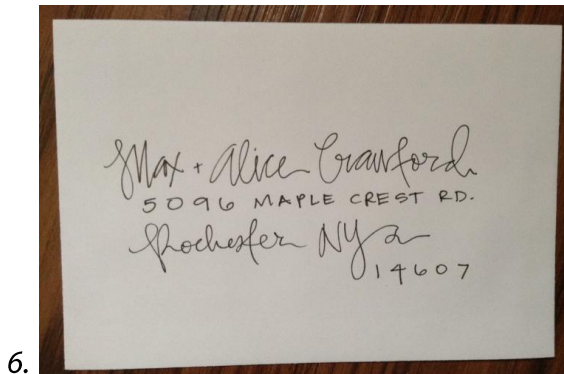 Max + Alice Crawford
5096 MAPLE CREST RD.
Rochester NY
14607
6.